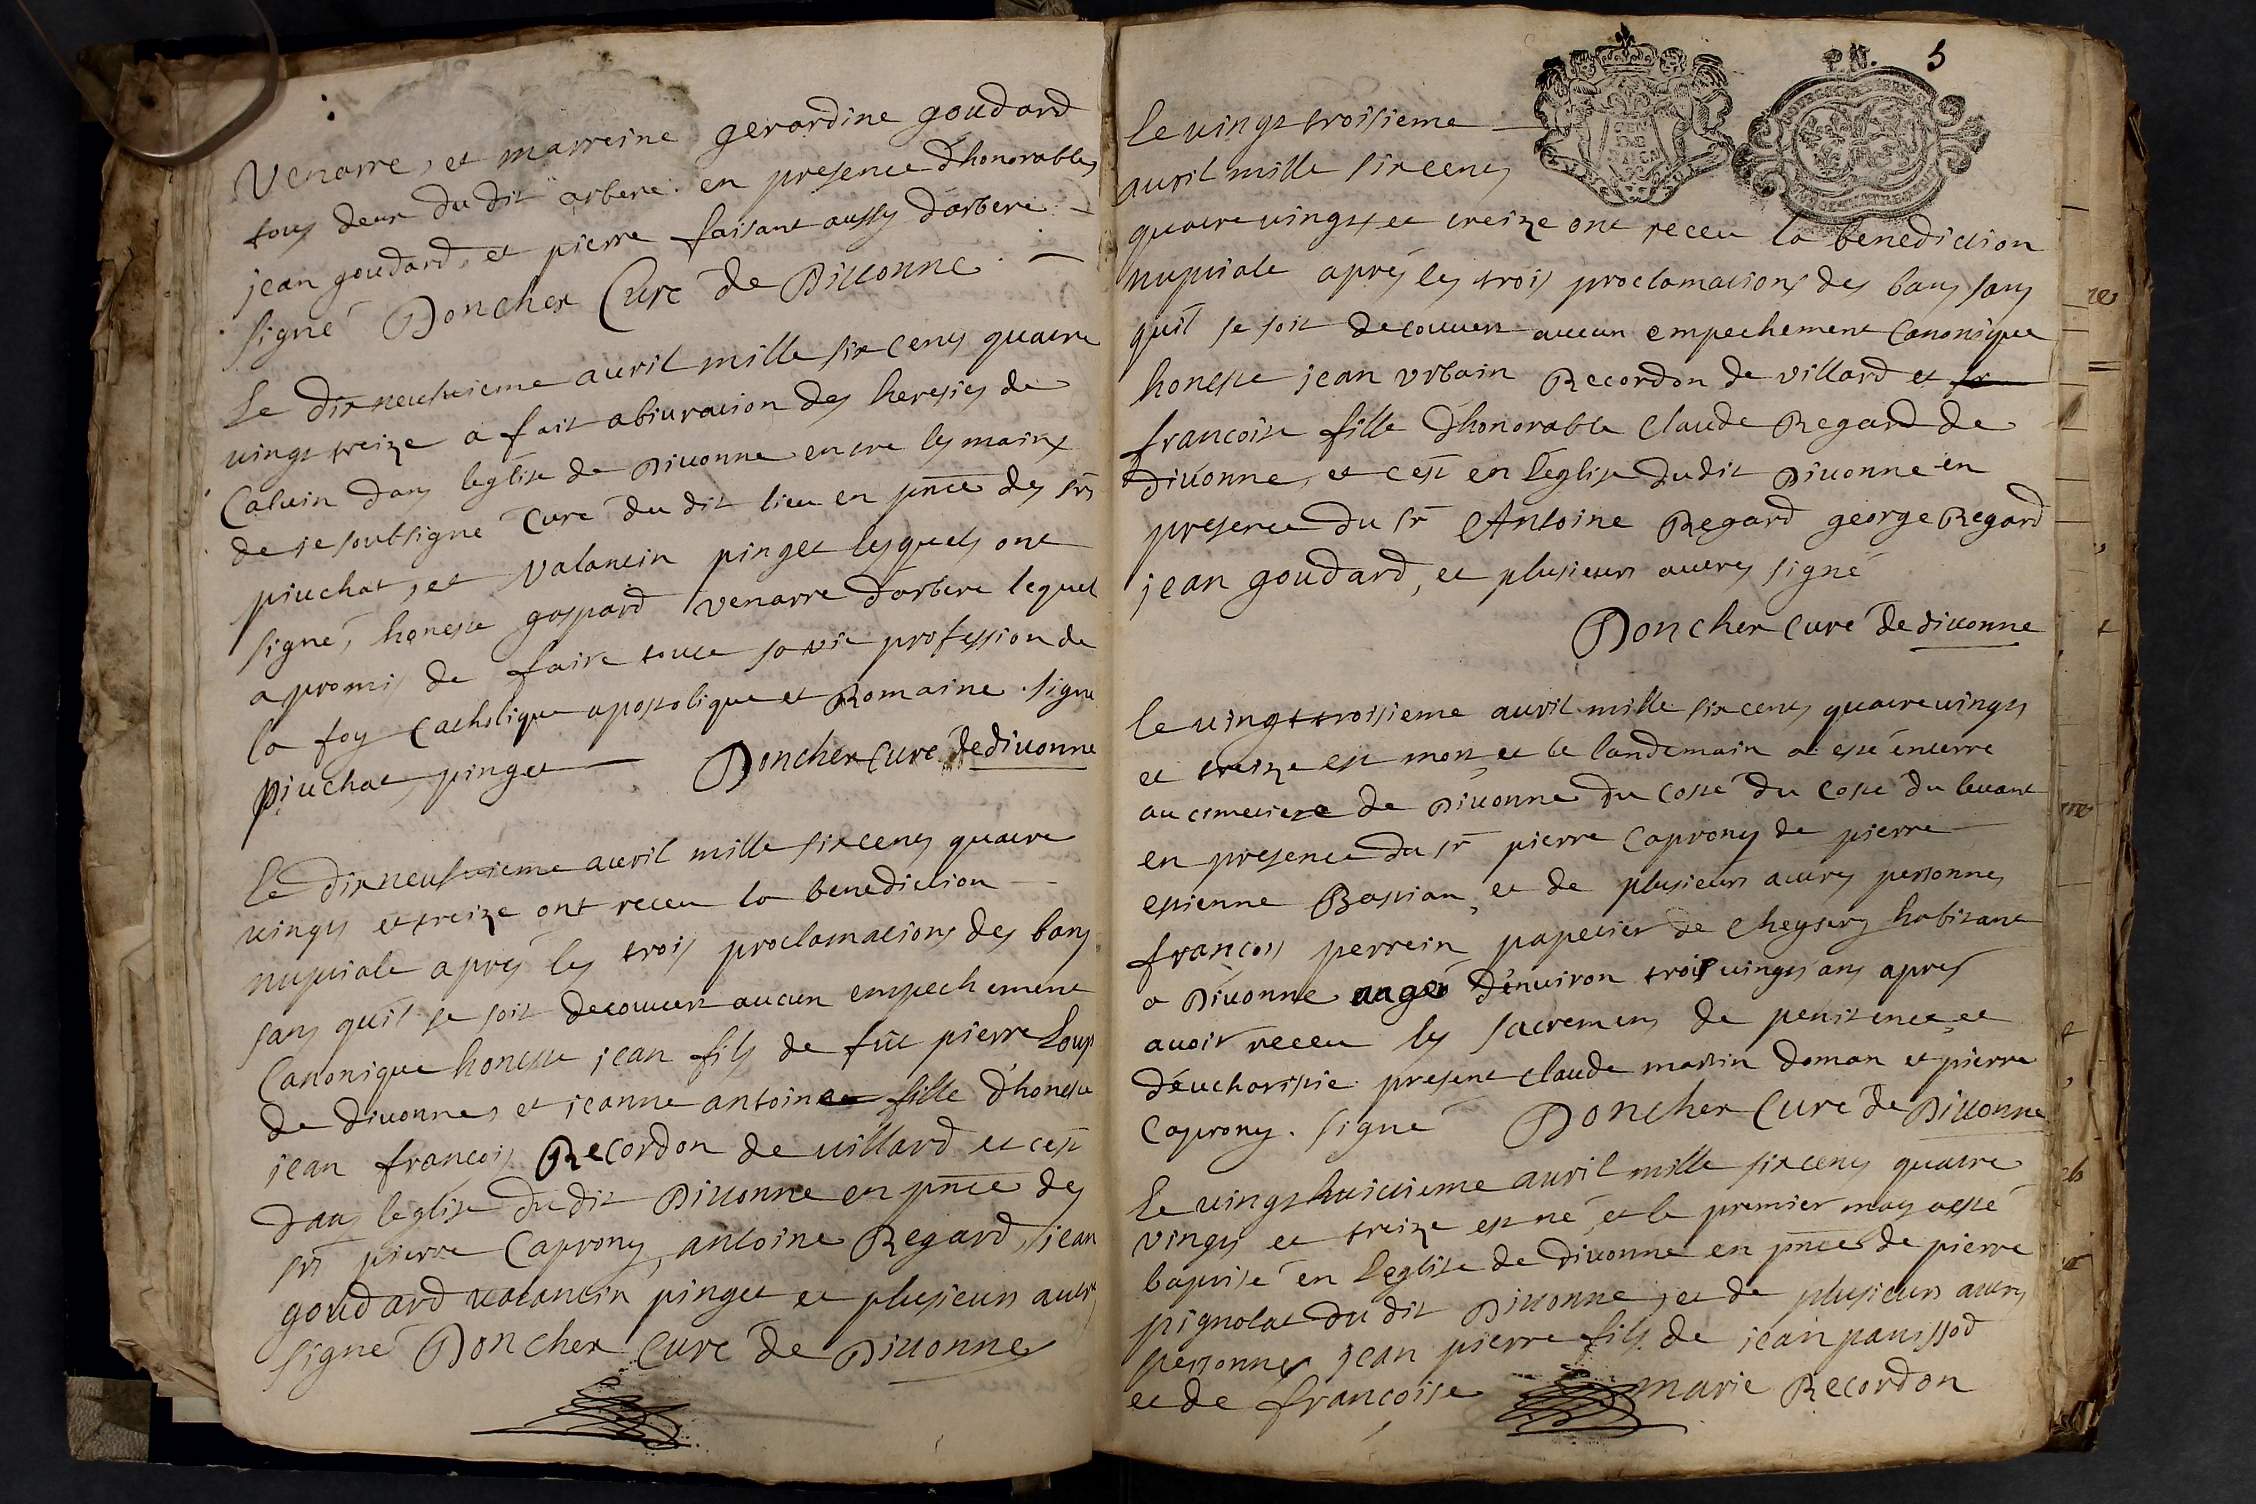 Venarre, et marreine gerardine goudard
tous deux du dit arbere en presence d'honorables
jean goudard, et pierre faisant aussy d'arbere
signé Doncher Curé de Diuonne
Le dixneufuieme auril mille six cens quatre
uingt treize a fait abiuration des heresies de
Caluin dans leglise de Diuonne entre les mains
de je soubsigné Curé du dit lieu en pnce des srs
piuchat, et Valantin pinget lesquels ont
signé, honeste gaspard Venarre d'arbere lequel
a promis de faire toute sa vie profession de
la foy Catholique apostolique et Romaine. signé
piuchat, pinget Doncher Curé de diuonne
Le dixneufuieme auril mille six cens quatre
uingts et treize ont receu la benediction
nuptiale apres les trois proclamations des bans
sans quil se soit decouuert aucun empechement
Canonique honeste jean fils de fût pierre Loup
de diuonne, et jeanne antoine fille d'honeste
jean francois Recordon de uillard et cest
dans leglise du dit Diuonne en pnce des
srs pierre Caprony, antoine Regard, jean
goudard ualantin pinget et plusieurs autres
signé Doncher Curé de Diuonne
P.N. 5
GEN
DE
le uingt troisieme
auril mille six cens
quatre uingts et treize ont receu la benediction
nuptiale aprés les trois proclamations des bans sans
quil se soit decouuert aucun empechement Canonique
honeste jean vrbain Recordon de villard et
francoise fille d'honorable Claude Regard de
diuonne, et cest en l'eglise du dit Diuonne en
presence du sr Antoine Regard george Regard
jean goudard, et plusieurs autres signé
Doncher Curé de diuonne
le uingt troisieme auril mille six cens quatre uingts
et treize est mort et le landemain a esté enterré
au cimetiere de Diuonne du costé du costé du leuant
en presence du sr pierre Caprony de pierre
estienne Bastian, et de plusieurs autres personnes
francois perrein papetier de Cheysery habitant
a Diuonne angé d'enuiron trois uingts ans apres
auoir receu les sacremens de penitence et
d'eucharistie present Claude martin doman et pierre
Caprony. signé Doncher Curé de Diuonne
Le uingt huictieme auril mille six cens quatre
vingts et treize est né, et le premier may a esté
baptisé en l'eglise de diuonne en pnce de pierre
pignolat du dit Diuonne, et de plusieurs autres
personnes jean pierre fils de jean panissod
et de francoise marie Recordon